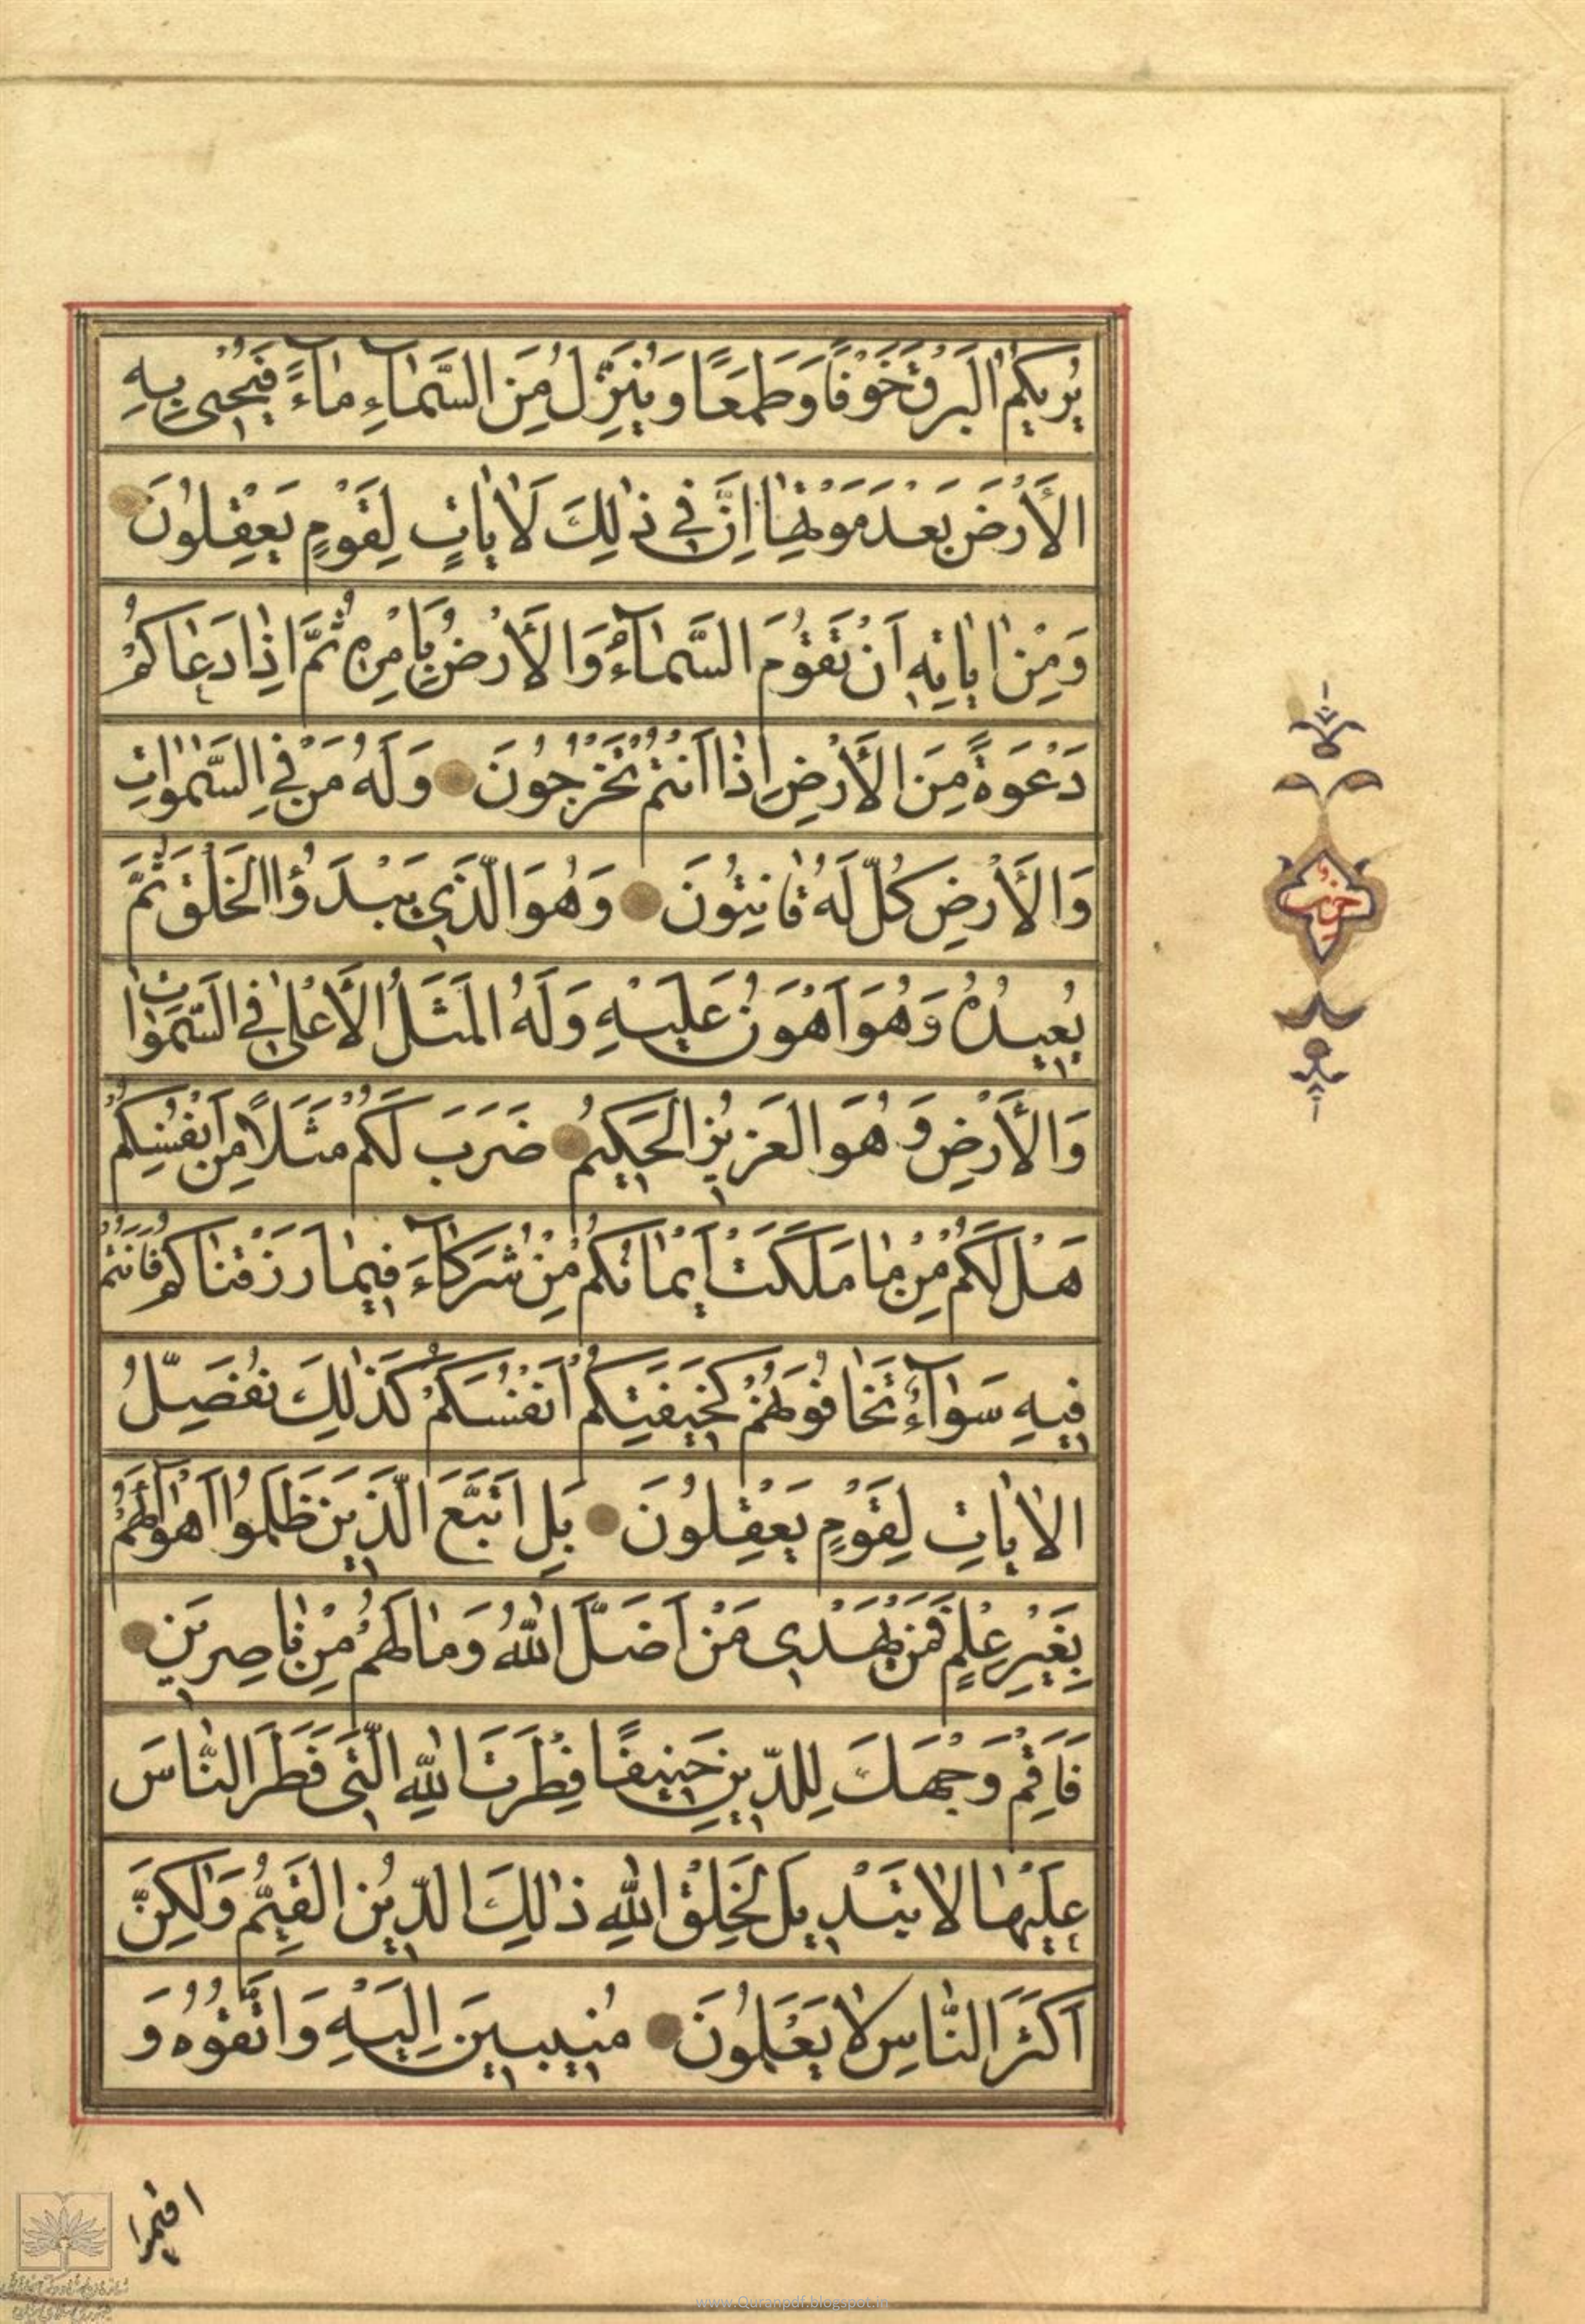 يُرِيكُمُ الْبَرْقَ خَوْفًا وَطَمَعًا وَيُنَزِّلُ مِنَ السَّمٰآءِ مٰآءً فَيُحْيِي بِهِ
الْأَرْضَ بَعْدَ مَوْتِهٰا اِنَّ فِي ذٰلِكَ لَاٰيٰاتٍ لِقَوْمٍ يَعْقِلُونَ
وَمِنْ اٰيٰاتِهِ اَنْ تَقُومَ السَّمٰآءُ وَالْأَرْضُ بِأَمْرِهِ ثُمَّ اِذٰا دَعٰاكُمْ
دَعْوَةً مِنَ الْأَرْضِ اِذٰا اَنْتُمْ تَخْرُجُونَ وَلَهُ مَنْ فِي السَّمٰوٰاتِ
وَالْأَرْضِ كُلٌّ لَهُ قٰانِتُونَ وَهُوَ الَّذِي يَبْدَؤُا الْخَلْقَ ثُمَّ
يُعِيدُهُ وَهُوَ اَهْوَنُ عَلَيْهِ وَلَهُ الْمَثَلُ الْأَعْلٰى فِي السَّمٰوٰاتِ
وَالْأَرْضِ وَهُوَ الْعَزِيزُ الْحَكِيمُ ضَرَبَ لَكُمْ مَثَلًا مِنْ اَنْفُسِكُمْ
هَلْ لَكُمْ مِنْ مٰا مَلَكَتْ اَيْمٰانُكُمْ مِنْ شُرَكٰآءَ فِيمٰا رَزَقْنٰاكُمْ فَاَنْتُمْ
فِيهِ سَوٰآءٌ تَخٰافُونَهُمْ كَخِيفَتِكُمْ اَنْفُسَكُمْ كَذٰلِكَ نُفَصِّلُ
الْاٰيٰاتِ لِقَوْمٍ يَعْقِلُونَ بَلِ اتَّبَعَ الَّذِينَ ظَلَمُوا اَهْوٰآءَهُمْ
بِغَيْرِ عِلْمٍ فَمَنْ يَهْدِي مَنْ اَضَلَّ اللّٰهُ وَمٰا لَهُمْ مِنْ نٰاصِرِينَ
فَاَقِمْ وَجْهَكَ لِلدِّينِ حَنِيفًا فِطْرَتَ اللّٰهِ الَّتِي فَطَرَ النّٰاسَ
عَلَيْهٰا لٰا تَبْدِيلَ لِخَلْقِ اللّٰهِ ذٰلِكَ الدِّينُ الْقَيِّمُ وَلٰكِنَّ
اَكْثَرَ النّٰاسِ لٰا يَعْلَمُونَ مُنِيبِينَ اِلَيْهِ وَاتَّقُوهُ وَ
حزب
اقيموا
www.Quranpdf.blogspot.in